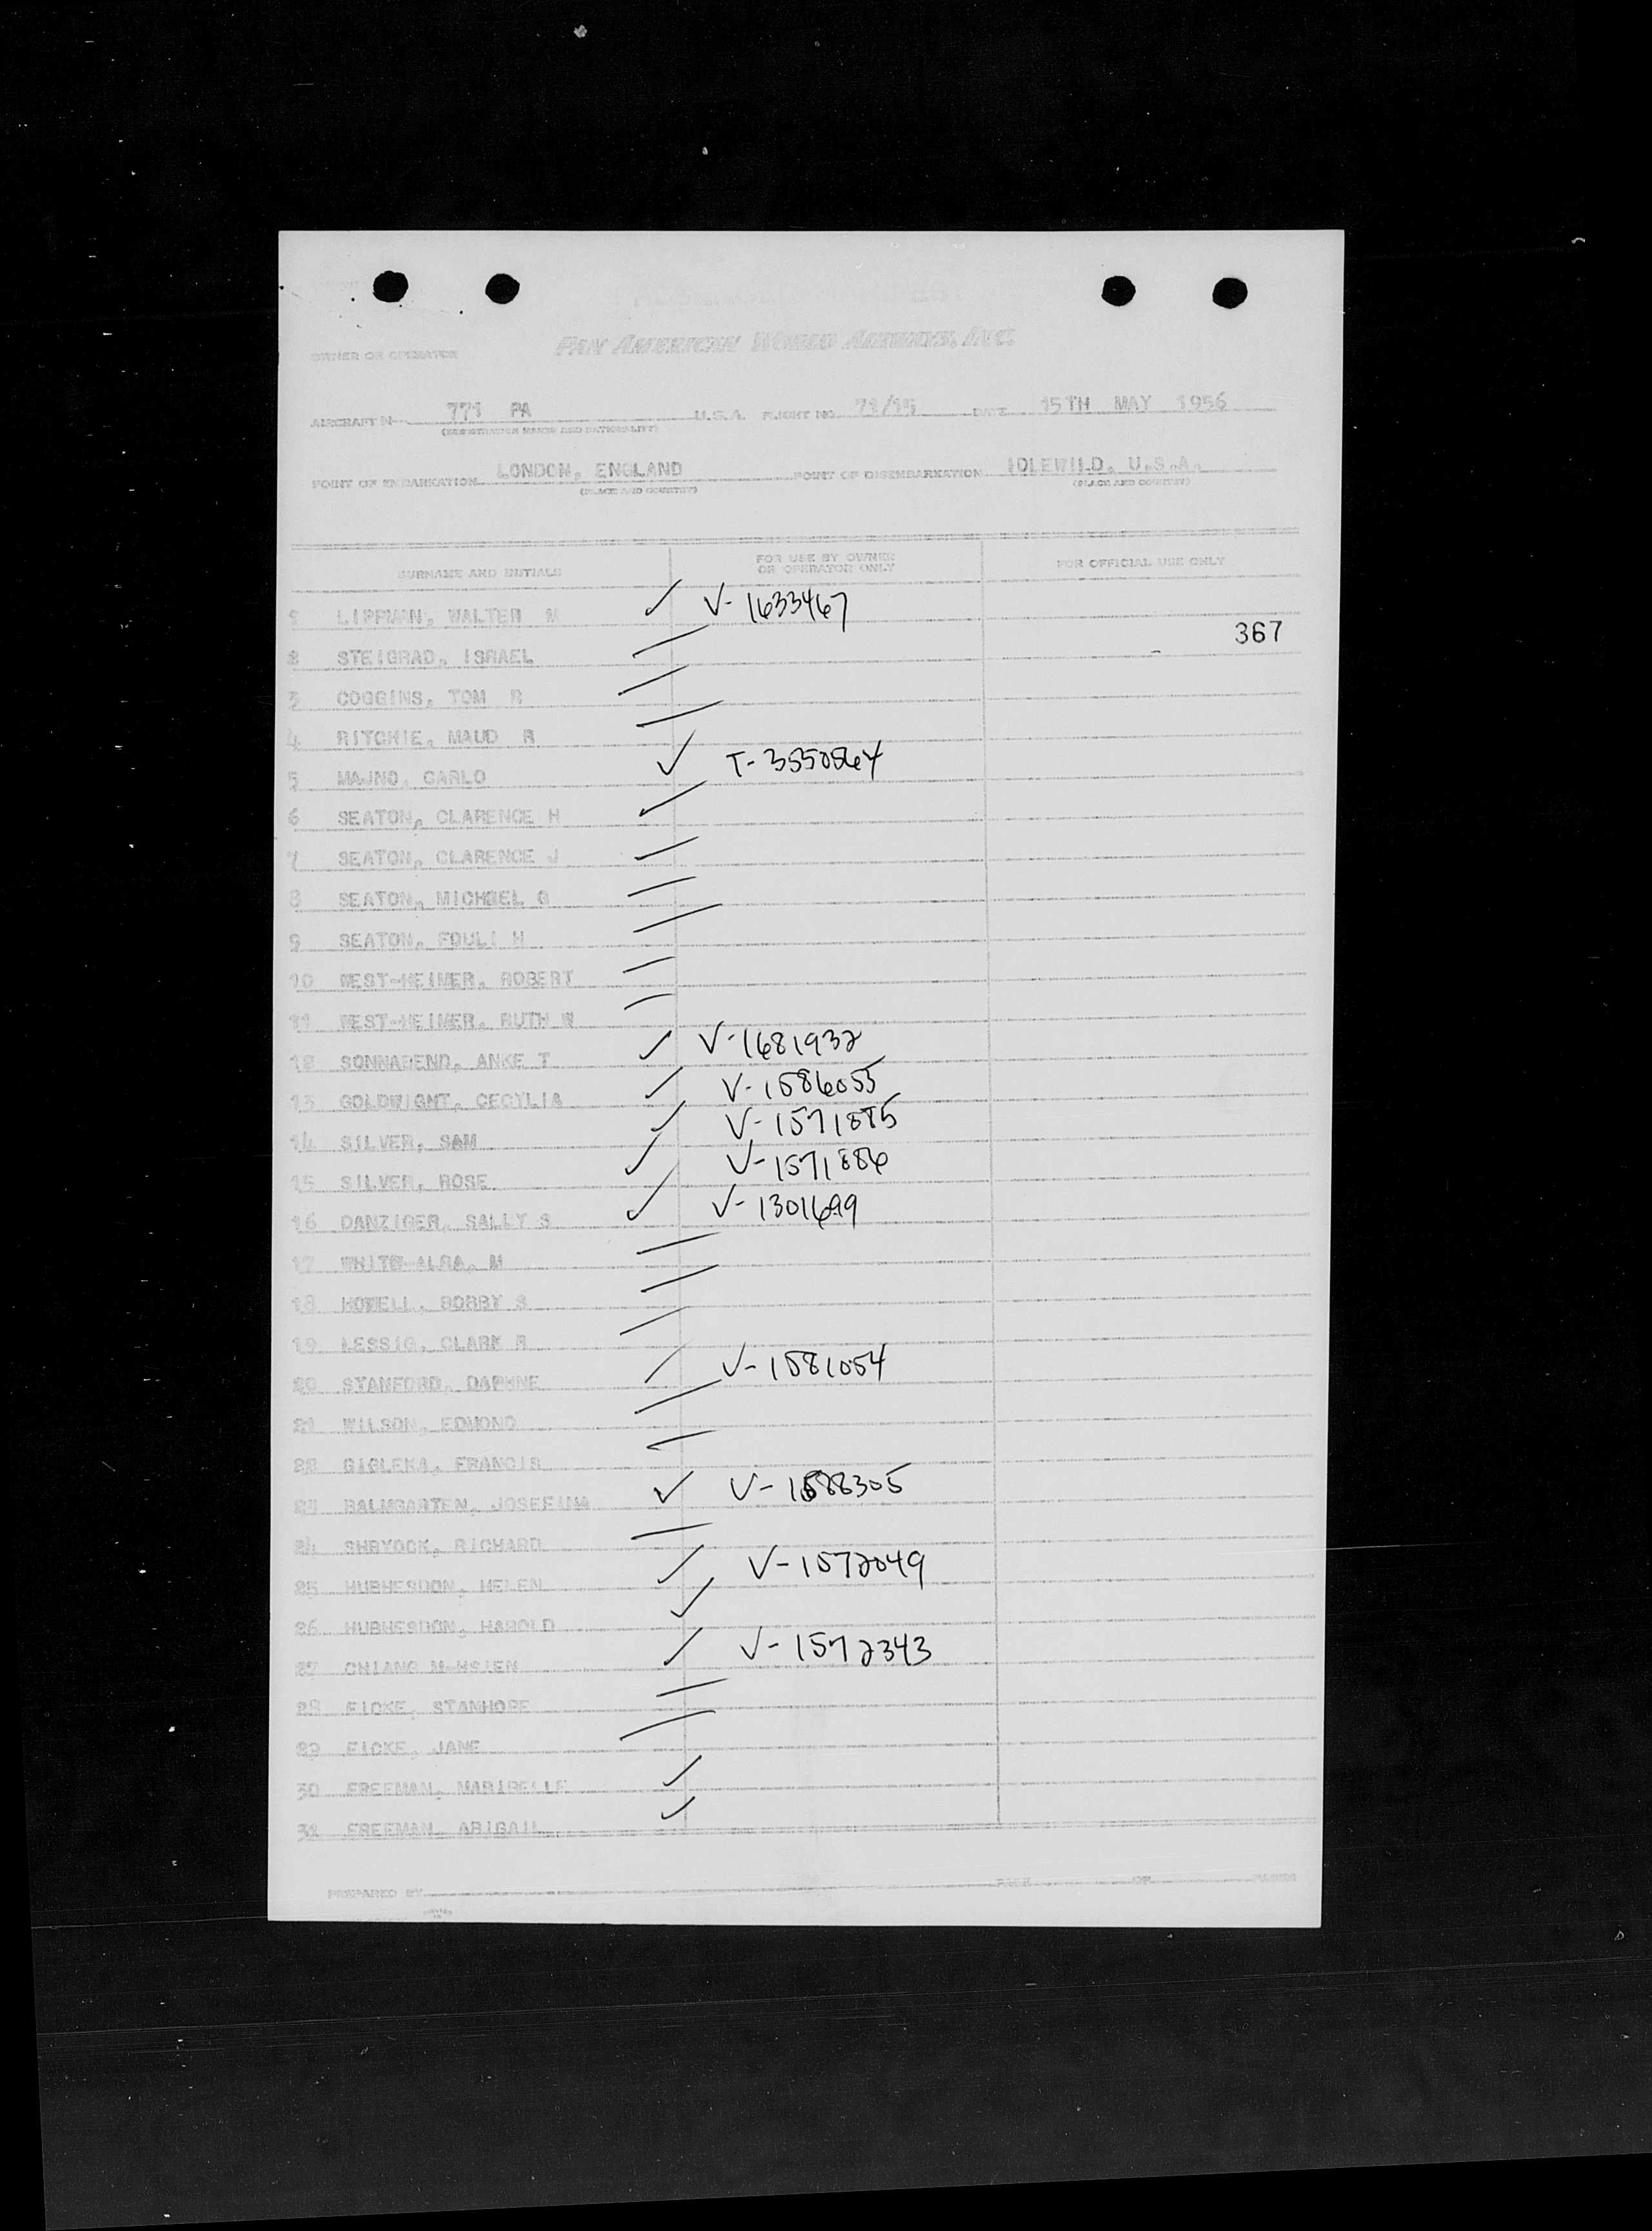 PAN AMERICAN WORLD AIRWAYS, INC.
OWNER OR OPERATOR
AIRCRAFT N 771 PA U.S.A. FLIGHT NO. 71/15 DATE 15TH MAY 1956
(REGISTRATION MARKS AND NATIONALITY)
POINT OF EMBARKATION LONDON, ENGLAND POINT OF DISEMBARKATION IDLEWILD, U.S.A.
(PLACE AND COUNTRY) (PLACE AND COUNTRY)
SURNAME AND INITIALS FOR USE BY OWNER OR OPERATOR ONLY FOR OFFICIAL USE ONLY
1 LIPPMAN, WALTER M ✓ V-1633467
367
2 STEIGRAD, ISRAEL
3 COGGINS, TOM R
4 RITCHIE, MAUD R
5 MAJNO, CARLO ✓ T-3550564
6 SEATON, CLARENCE H
7 SEATON, CLARENCE J
8 SEATON, MICHAEL G
9 SEATON, FOULI H
10 WEST-HEIMER, ROBERT
11 WEST-HEIMER, RUTH W
12 SONNABEND, ANKE T ✓ V-1681932
13 GOLDWIGHT, CECYLIA ✓ V-1586055
14 SILVER, SAM ✓ V-1571885
15 SILVER, ROSE ✓ V-1571886
16 DANZIGER, SALLY S ✓ V-1301699
17 WHITE ALBA, M
18 HOWELL, BOBBY S
19 LESSIG, CLARK R
20 STANFORD, DAPHNE V-1581054
21 WILSON, EDMOND
22 GIGLEKA, FRANCIS
23 BALMGARTEN, JOSEFINA ✓ V-1588305
24 SHRYOCK, RICHARD
25 HUBHESDON, HELEN ✓ V-1572049
26 HUBHESDON, HAROLD ✓
27 CHIANG M-HSIEN ✓ V-1572343
28 FICKE, STANHOPE
29 FICKE, JANE
30 FREEMAN, MARIBELLE ✓
31 FREEMAN, ABIGAIL ✓
PREPARED BY PAGE OF PAGES